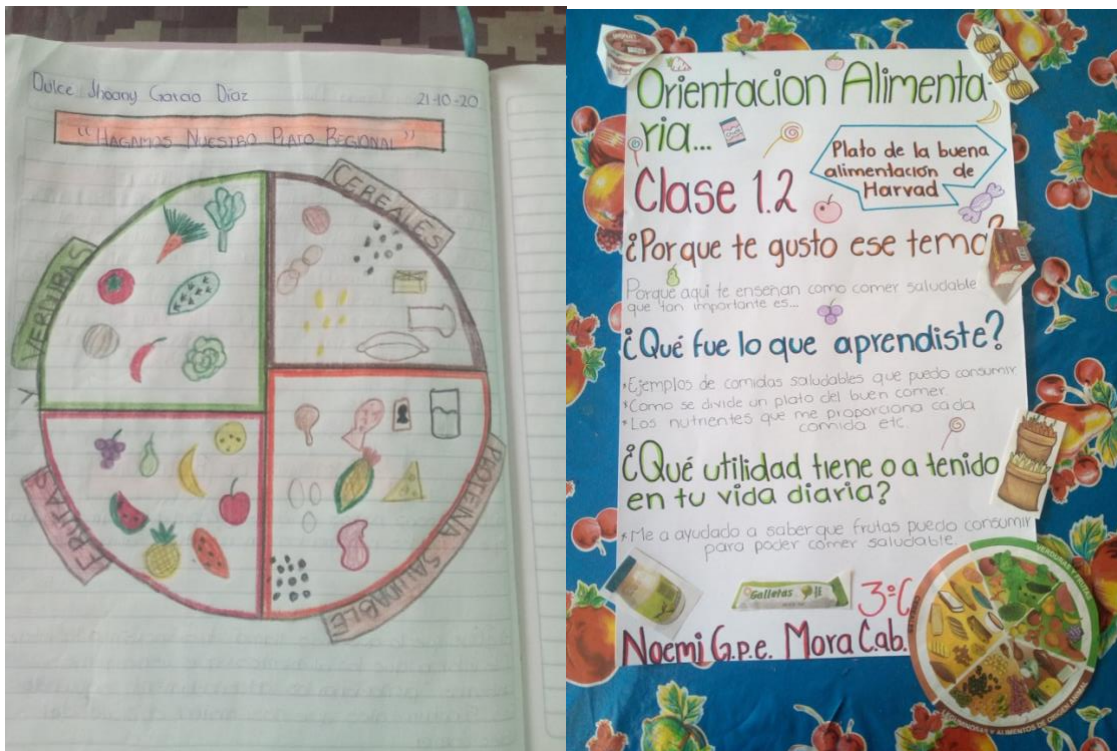 Dulce Jhoany Garcia Diaz
21-10-20
"HAGAMOS NUESTRO PLATO REGIONAL"
CEREALES
VERDURAS
FRUTAS
PROTEINA SALUDABLE
Orientacion Alimenta-
ria...
Clase 1.2
Plato de la buena
alimentación de
Harvad
¿Porque te gusto ese tema?
Porque aqui te enseñan como comer saludable
que tan importante es...
¿Qué fue lo que aprendiste?
*Ejemplos de comidas saludables que puedo consumir.
*Como se divide un plato del buen comer.
*Los nutrientes que me proporciona cada
comida etc.
¿Qué utilidad tiene o a tenido
en tu vida diaria?
*Me a ayudado a saber que frutas puedo consumir
para poder comer saludable.
Galletas
3ºC
Noemi G.p.e. Mora Cab.
VERDURAS Y FRUTAS
CEREALES
LEGUMINOSAS Y ALIMENTOS DE ORIGEN ANIMAL